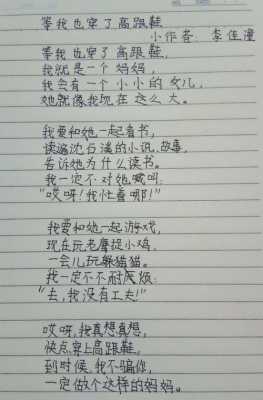 等我也穿了高跟鞋
小作者：李佳潼
等我也穿了高跟鞋，
我就是一个妈妈，
我会有一个小小的女儿，
她就像我现在这么大。
我要和她一起看书，
读遍沈石溪的小说，故事，
告诉她为什么读书。
我一定不对她喊叫：
“哎呀！我忙着哪！”
我要和她一起游戏，
现在玩老鹰捉小鸡，
一会儿玩躲猫猫。
我一定不不耐厌烦：
“去，我没有工夫！”
哎呀，我真想真想，
快点穿上高跟鞋，
到时候，我不骗你，
一定做个这样的妈妈。